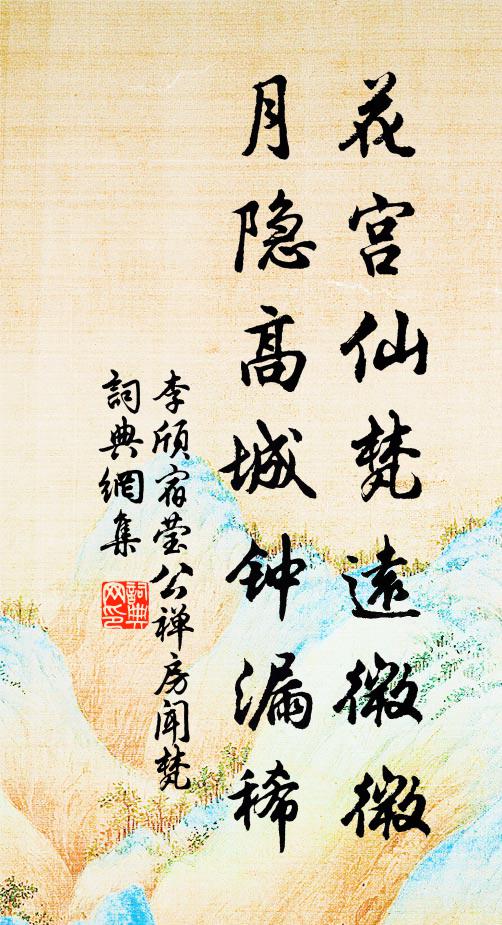 花宫仙梵遠微微
月隐高城钟漏稀
李颀宿莹公禅房闻梵
詞典網集
詞典网印